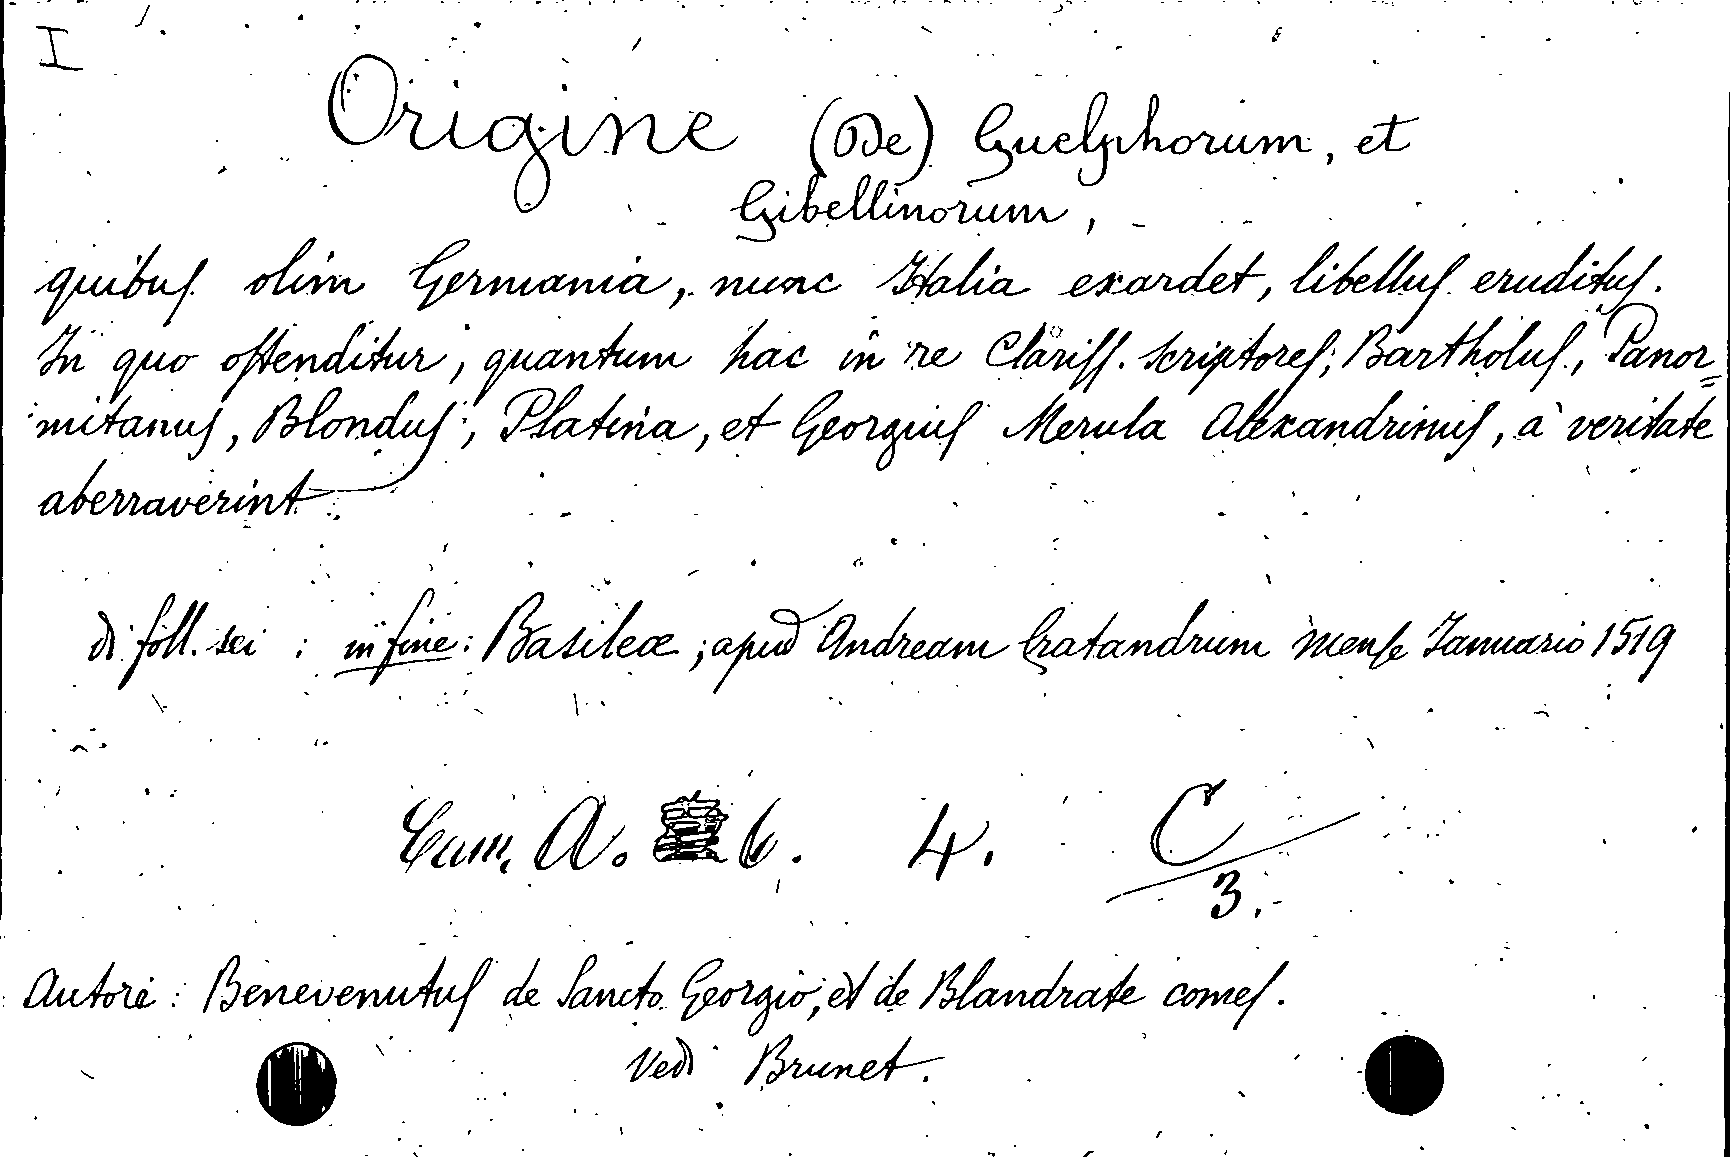 I
Origine (De) Guelphorum, et
Gibellinorum,
quibus olim Germania, nunc Italia exardet, libellus eruditus.
In quo ostenditur, quantum hac in re Clariss. scriptores; Bartholus, Panor=
mitanus, Blondus, Platina, et Georgius Merula Alexandrinus, à veritate
aberraverint.
di foll. sei : in fine: Basileæ; apud Andream Cratandrum mense Januario 1519
Cam. A. 6. 4. C/3.
Autore: Benevenutus de Sancto Georgio, et de Blandrate comes.
Vedi Brunet.